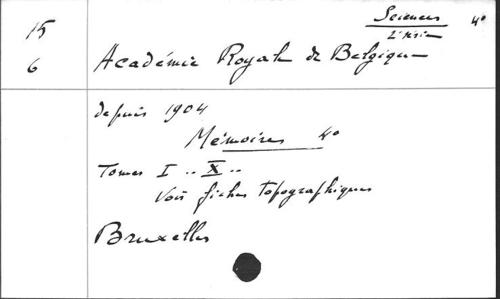 15
6
Sciences 4º
2e série
Académie Royale de Belgique
depuis 1904
Mémoires 4º
Tomes I .. X ..
Voir fiches topographiques
Bruxelles